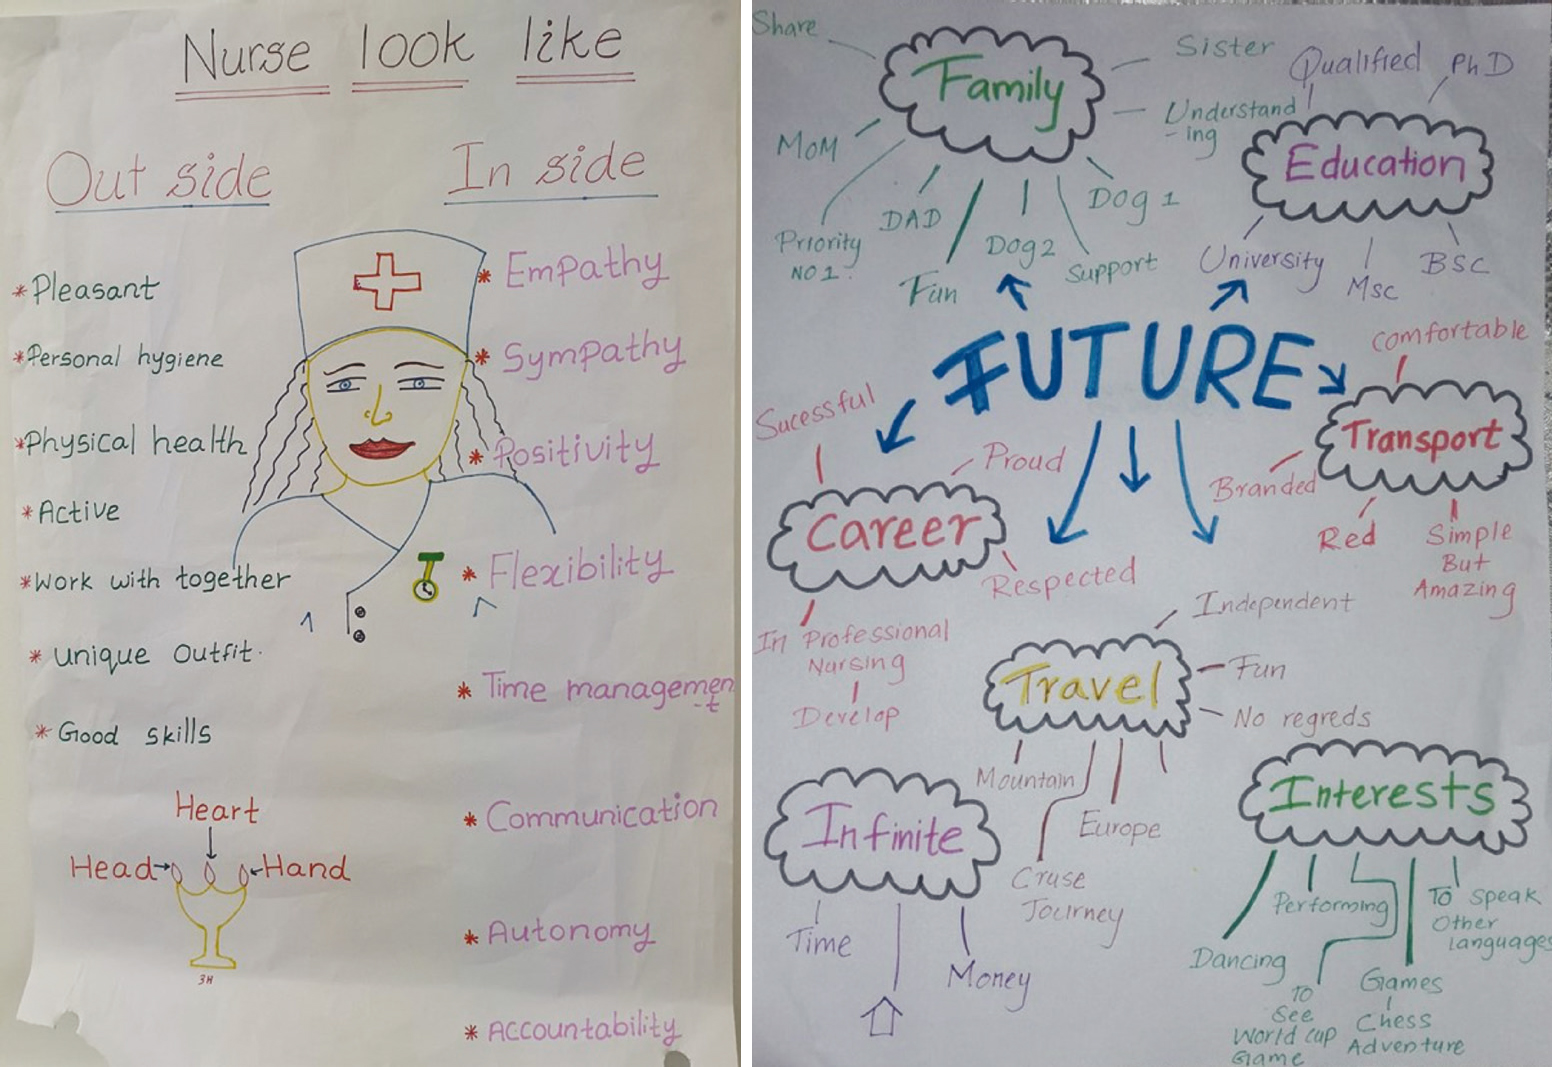 Nurse look like
Out side
In side
*Pleasant
*Personal hygiene
*Physical health
*Active
*Work with together
*unique outfit.
*Good skills
Heart
Head
Hand
3H
*Empathy
*Sympathy
*Positivity
*Flexibility
*Time managemen
-t
*Communication
*Autonomy
*Accountability
Share
Family
Sister
Understand
-ing
MoM
Priority
NO 1.
DAD
Fun
Dog 2
Support
Dog 1
Qualified
PhD
Education
University
Msc
BSC
FUTURE
comfortable
Transport
Branded
Red
Simple
But
Amazing
Sucessful
Proud
Career
Respected
In Professional
Nursing
Develop
Independent
Travel
Fun
No regreds
Mountain
Europe
Cruse
Journey
Infinite
Time
Money
Interests
Dancing
Performing
To
See
World cup
Game
Games
Chess
Adventure
To speak
Other
languages